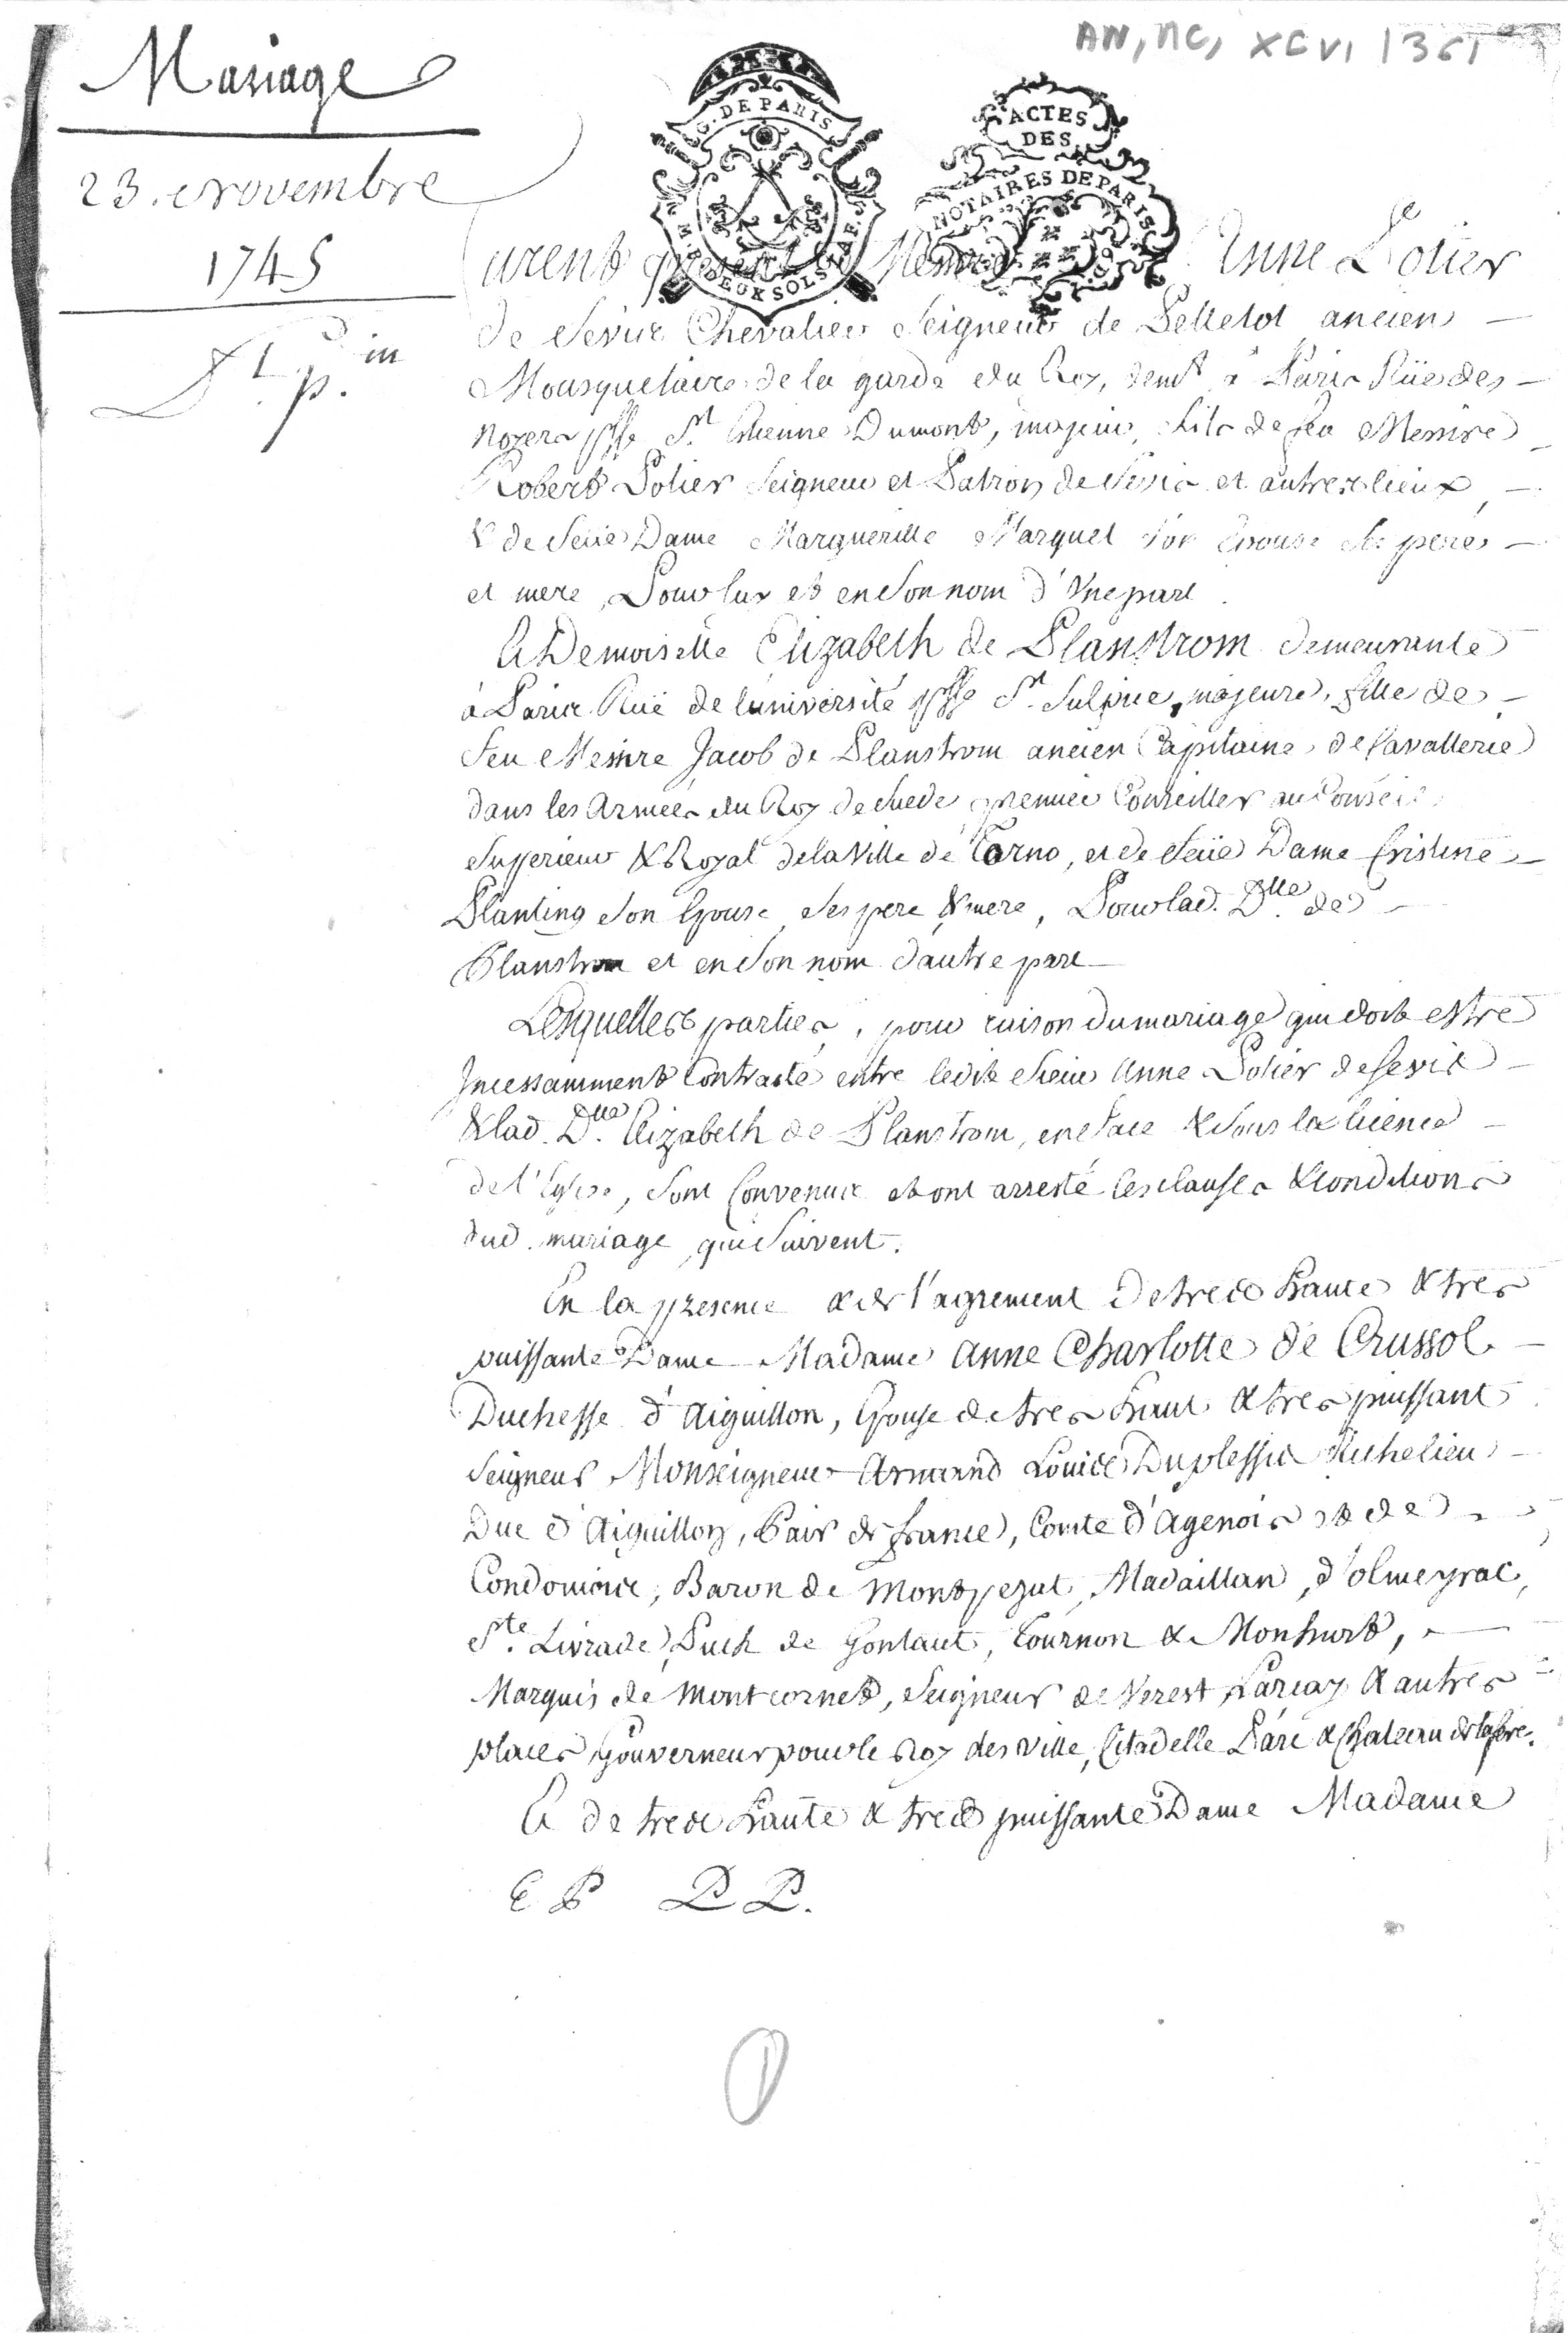 AN, MC, XCVI 361
Mariage
23. Novembre
1745
Dt. p. in
G. DE PARIS
DEUX SOLS
ACTES
DES
NOTAIRES DE PARIS
urent present Messire Anne Potier
de Sevis Chevalier Seigneur de Pelletot ancien
Mousquetaire de la garde du Roy, demt. à Paris Rüe des
Noyers psse St. Etienne Dumont, majeur, fils de feu Messire
Robert Potier Seigneur et Patron de Sevis et autres lieux,
& de feüe Dame Margueritte Marquet son Epouse ses pere
et mere, Pour luy et en son nom d'Une part.
Et Demoiselle Elizabeth de Planstrom demeurante
à Paris Ruë de luniversité psse St. Sulpice, majeure, fille de
feu Messire Jacob de Planstrom ancien Capitaine de Cavallerie
dans les Armées du Roy de Suede premier Conseiller au Conseil
Superieur & Royal de la Ville de Torno, et de feüe Dame Cristine
Planting son Epouse ses pere & mere, Pour lad. Dlle. de
Planstrom et en son nom d'autre part
Lesquelles parties, pour raison du mariage qui doit estre
Incessamment Contracté entre ledit Sieur Anne Potier de Sevis
& lad. Dlle. Elizabeth de Planstrom, en face & sous la licence
de l'Eglise, sont Convenus et ont arresté les clauses & conditions
dud. mariage qui suivent.
En la presence & de l'agrement De tres haute & tres
puissante Dame Madame Anne Charlotte de Crussol
Duchesse d'Aiguillon, Epouse de tres haut & tres puissant
Seigneur Monseigneur Armand Louis Duplessis Richelieu
Duc d'Aiguillon, Pair de france, Comte d'Agenois et de
Condomois, Baron de Montpezat, Madaillan, d'olmeyrac,
Ste. Livrade, Puch de Gontaut, Tournon & Monhurt,
Marquis de Montcornet, Seigneur de Verest Larcay & autres
places, Gouverneur pour le Roy des Ville, Citadelle Parc & Chateau de lafere.
Et de tres haute & tres puissante Dame Madame
E P D P.
1